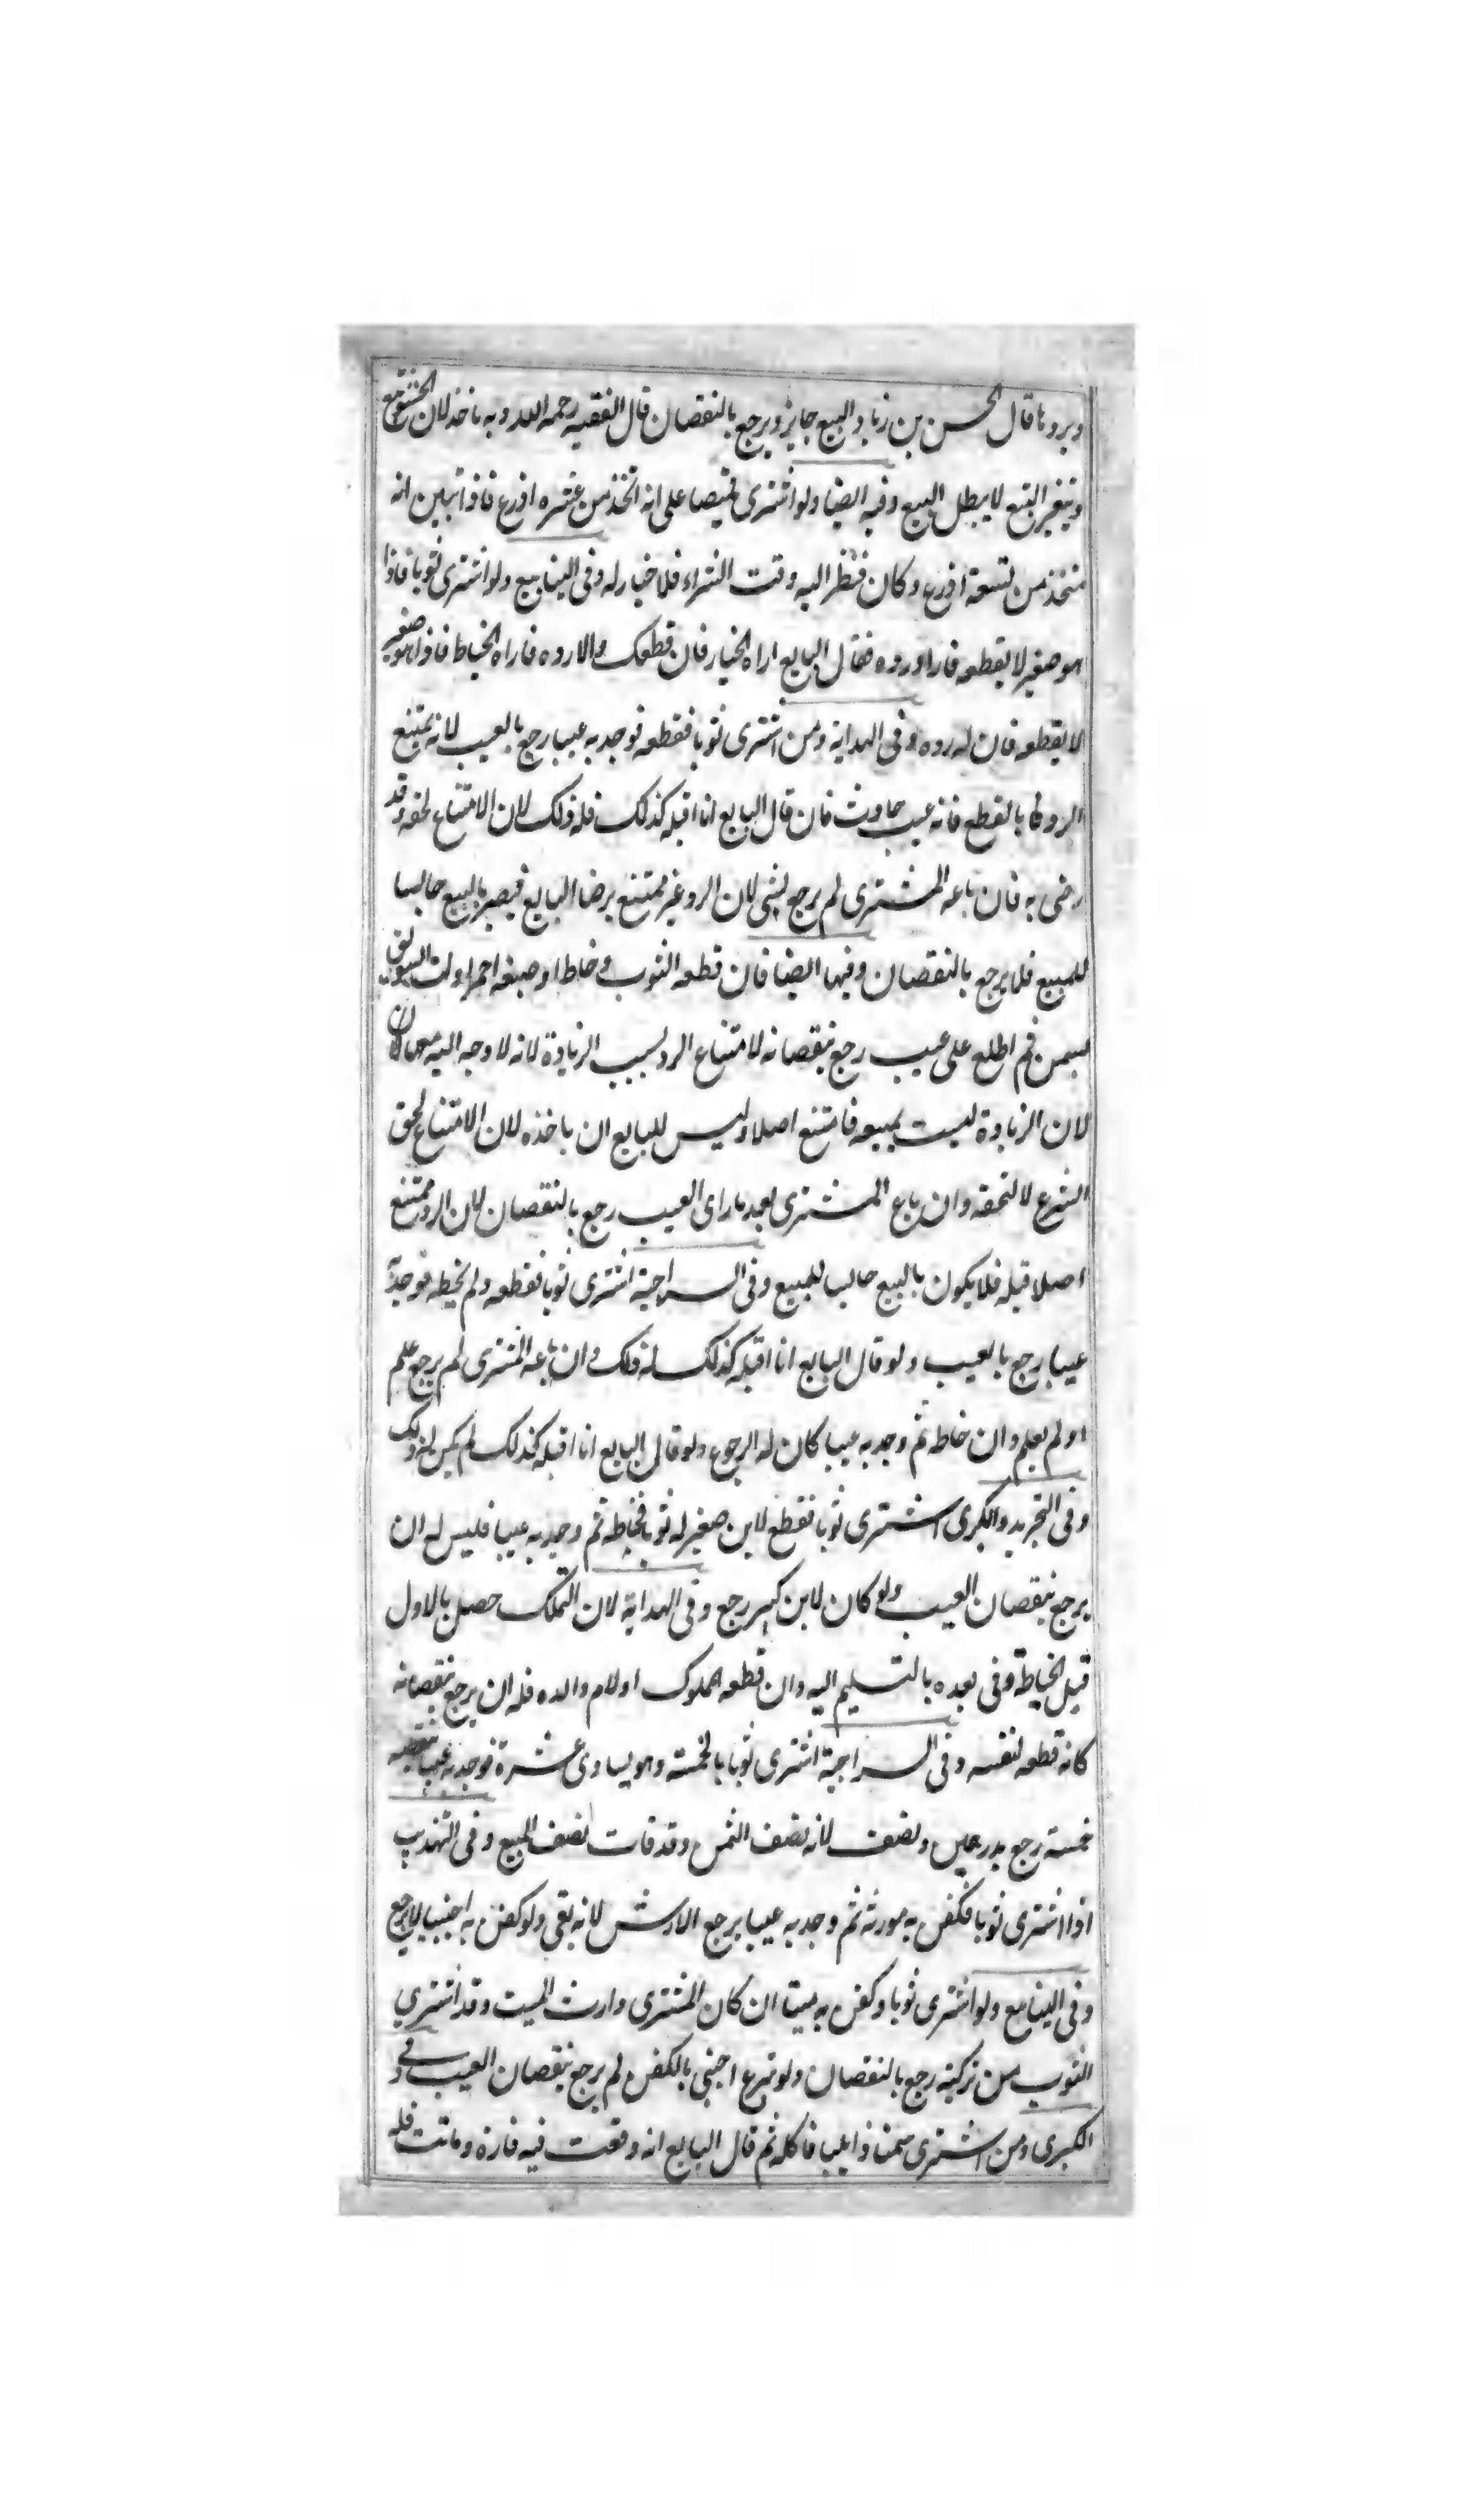 ويردها قال الحسن بن زياد والبيع جايز ويرجع بالنقصان قال الفقيه رحمه الله وبه ناخذ لان الحشو تبع
وتغير التبع لا يبطل البيع وفيه ايضا ولو اشترى قميصا على انه اتخذ من عشره اذرع فاذا تبين انه
متخذ من تسعة اذرع وكان ينظر اليه وقت الشراء فلا خيار له وفى الينابيع ولو اشترى ثوبا فاذا
هو صغير لا يقطعه فاراد رده فقال البايع اراه الخياط فان قطعك والا رده فاراه الخياط فاذا هو صغير
لا يقطعه فان له رده وفى الهداية ومن اشترى ثوبا فقطعه فوجد به عيبا رجع بالعيب لانه يمتنع
الرد بالقطع فانه عيب حادث فان قال البايع انا اقبله كذلك فله ذلك لان الامتناع لحقه وقد
رضى به فان باعه المشترى لم يرجع بشى لان الرد غير ممتنع برضا البايع فيصير بالبيع حابسا
للمبيع فلا يرجع بالنقصان وفيها ايضا فان قطعه الثوب وخاط او صبغه احمر او لت السويق
بسمن ثم اطلع على عيب رجع بنقصانه لامتناع الرد بسبب الزيادة لانه لا وجه اليه
لان الزيادة ليست بمبيعه فامتنع اصلا وليس للبايع ان ياخذه لان الامتناع لحق
الشرع لا لحقه وان باع المشترى بعد ما راى العيب رجع بالنقصان لان الرد ممتنع
اصلا قبله فلا يكون بالبيع حابسا للمبيع وفى السراجية اشترى ثوبا فقطعه ولم يخيطه فوجد به
عيبا رجع بالعيب ولو قال البايع انا اقبله كذلك له ذلك وان باعه المشترى لم يرجع علم
او لم يعلم وان خاطه ثم وجد به عيبا كان له الرجوع ولو قال البايع انا اقبله كذلك لم يكن له ذلك
وفى التجريد والكبرى اشترى ثوبا فقطع لابن صغير له ثوبا فخاطه ثم وجد به عيبا فليس له ان
يرجع بنقصان العيب ولو كان لابن كبير رجع وفى الهداية لان التملك حصل بالاول
قبل الخياطة وفى بعده بالتسليم اليه وان قطعه لمملوك او لام والده فله ان يرجع بنقصانه
كانه قطعه لنفسه وفى السراجية اشترى ثوبا بالخمسة وهو يساوى عشرة فوجد به عيبا ينقصه
خمسة رجع بدرهمين ونصف لانه نصف الثمن وقد فات نصف المبيع وفى التهذيب
اذا اشترى ثوبا فكفن به مورثه ثم وجد به عيبا يرجع الارش لانه بقى ولو كفن به اجنبيا لا يرجع
وفى الينابيع ولو اشترى ثوبا وكفن به ميتا ان كان المشترى وارث الميت وقد اشترى
الثوب من تركته رجع بالنقصان ولو تبرع اجنبى بالكفن لم يرجع بنقصان العيب وفى
الكبرى ومن اشترى سمنا ذايبا فاكله ثم قال البايع انه وقعت فيه فارة وماتت فله